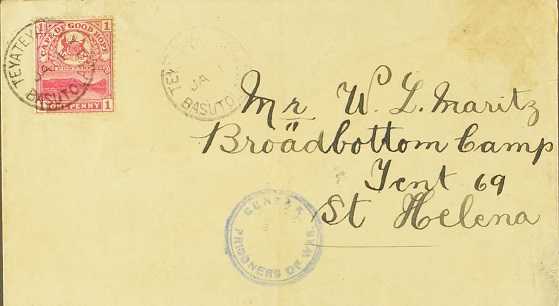 1 CAPE OF GOOD HOPE 1
ONE PENNY 1
TEYATEY
JA
BASUTO
TEY
JA
BASUTO
Mr W. L. Maritz
Broadbottom Camp
Tent 69
St Helena
CENSOR
PRISONERS OF WAR.